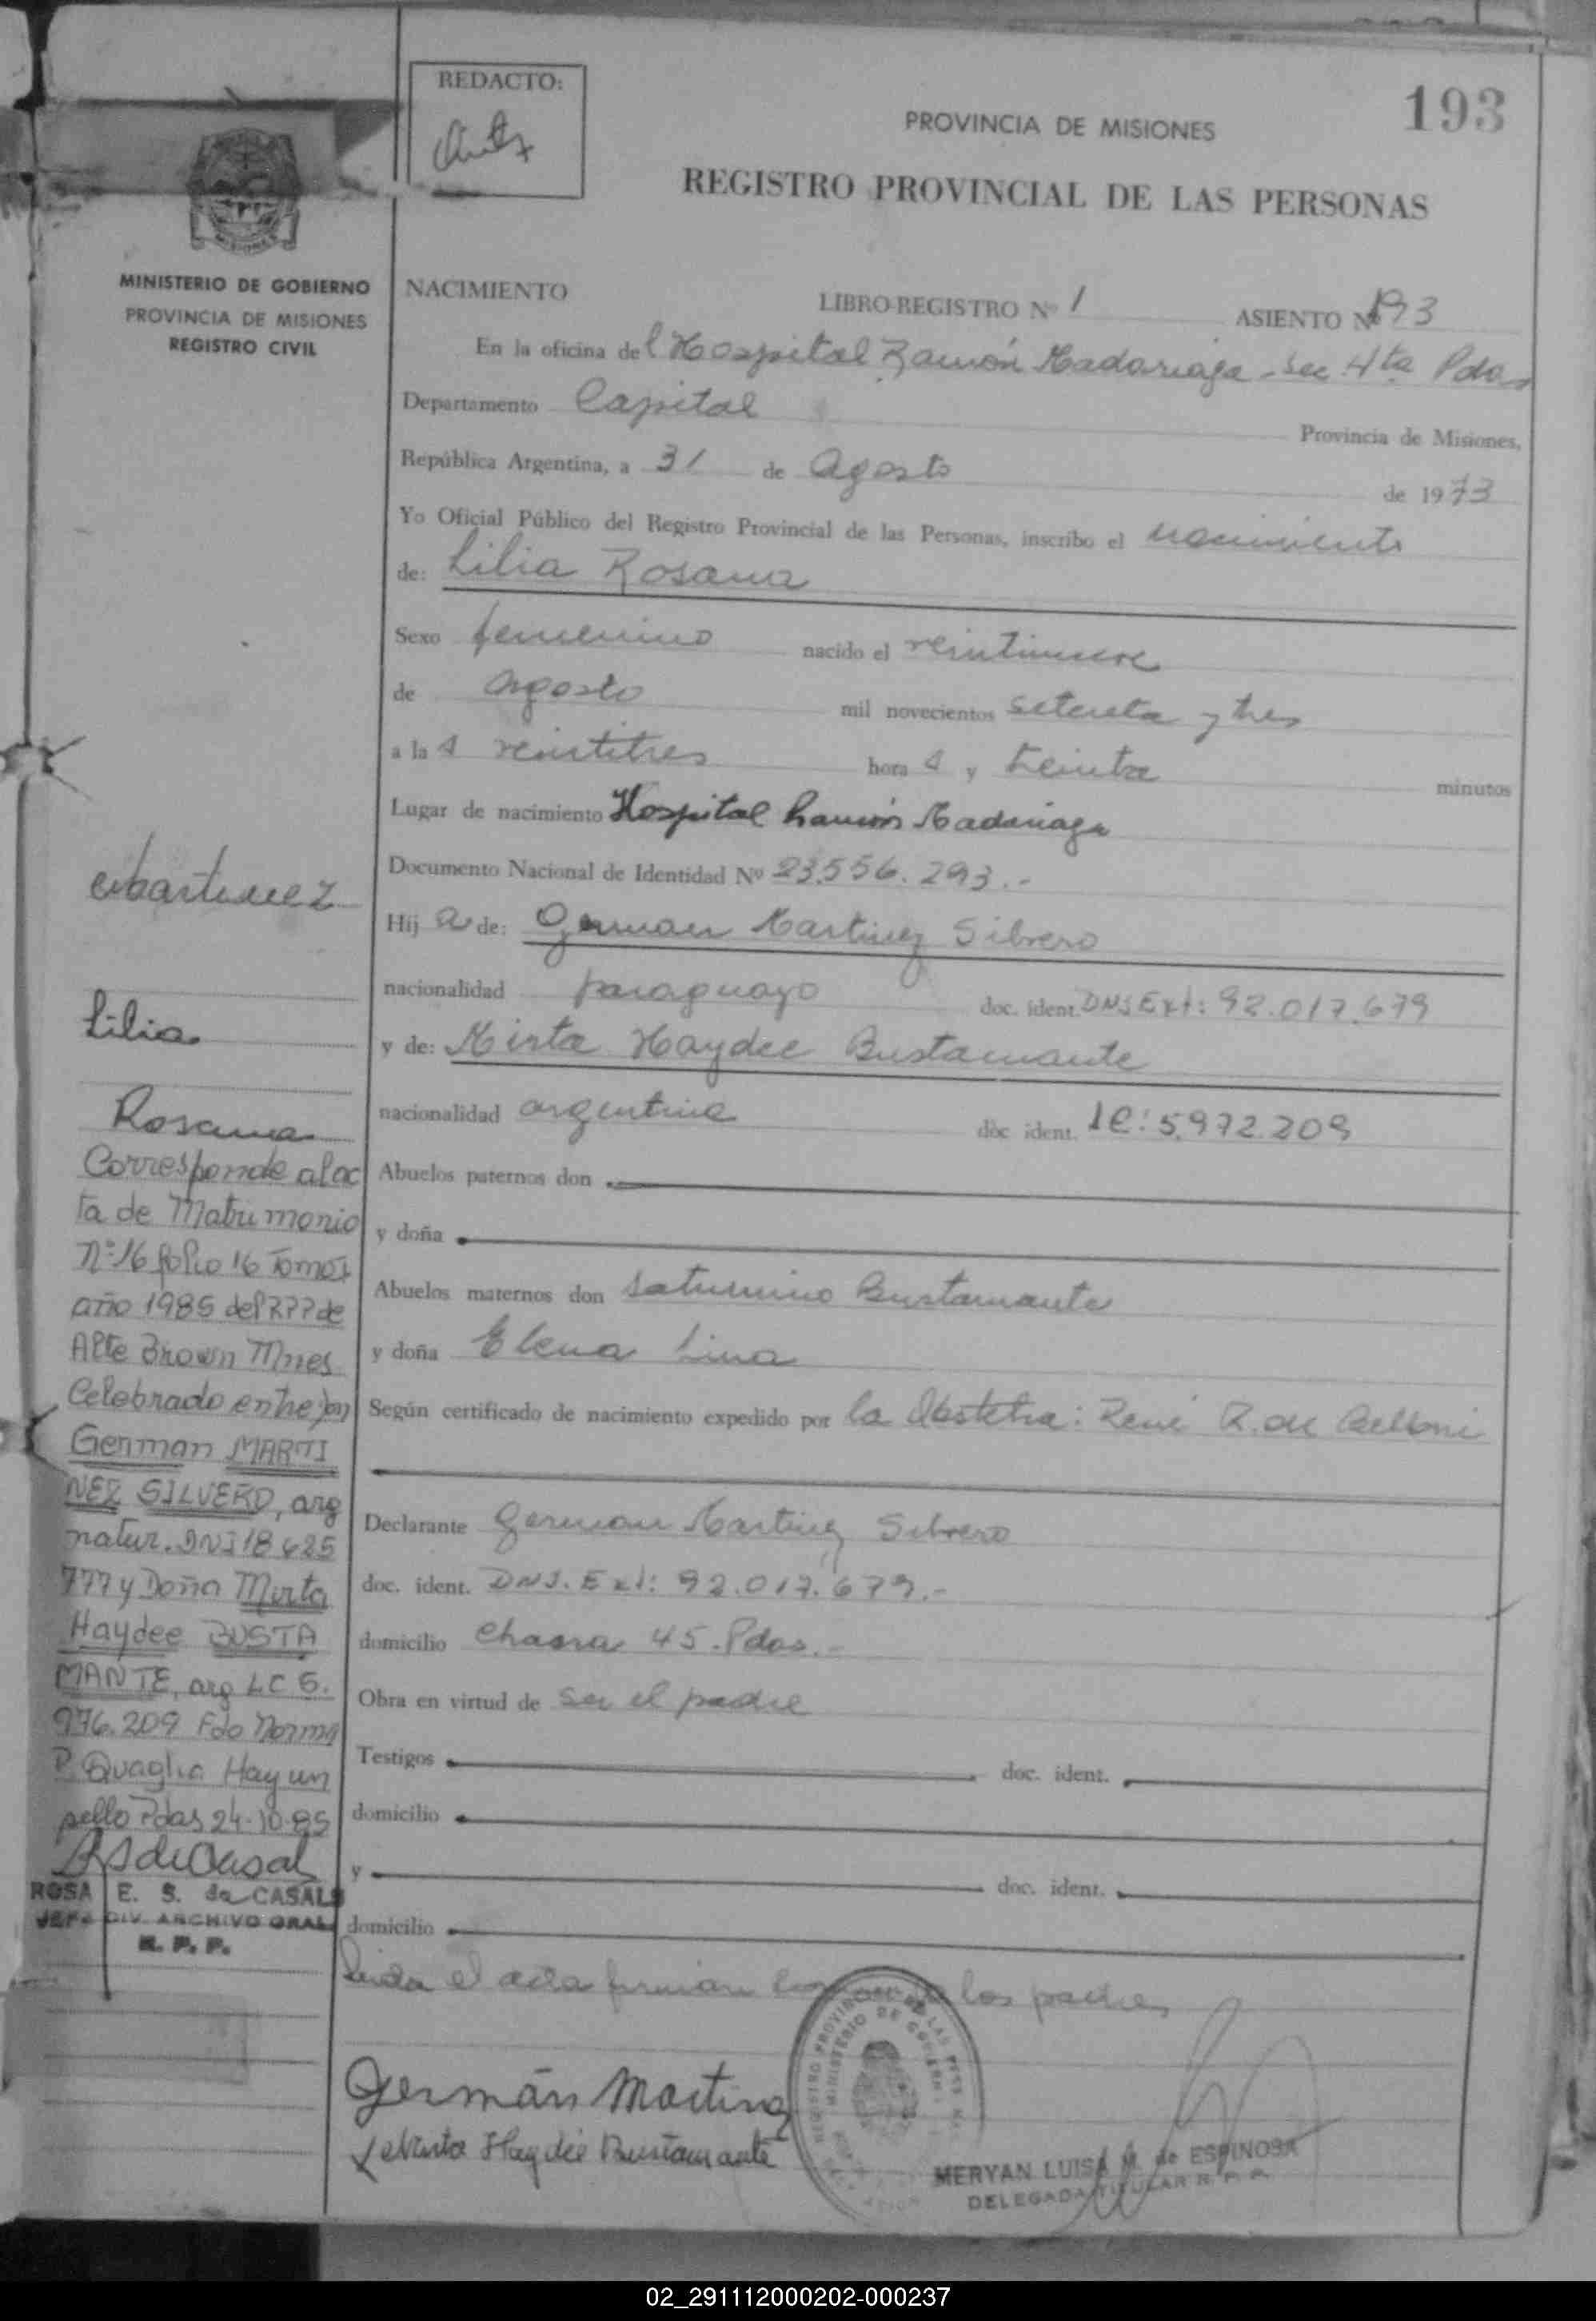 REDACTO:
193
PROVINCIA DE MISIONES
REGISTRO PROVINCIAL DE LAS PERSONAS
MINISTERIO DE GOBIERNO
PROVINCIA DE MISIONES
REGISTRO CIVIL
NACIMIENTO LIBRO-REGISTRO Nº 1 ASIENTO Nº 193
En la oficina del Hospital Ramón Madariaga - Sec 4ta Pdas
Departamento Capital Provincia de Misiones,
República Argentina, a 31 de Agosto de 1973
Yo Oficial Público del Registro Provincial de las Personas, inscribo el nacimiento
de: Lilia Rosana
Sexo femenino nacido el veintinueve
de agosto mil novecientos setenta y tres
a las veintitres horas y treinta minutos
Lugar de nacimiento Hospital Ramón Madariaga
Documento Nacional de Identidad Nº 23.556.293.-
Hija de: German Martinez Silvero
nacionalidad paraguayo doc. ident. DNI Ext: 92.017.679
y de: Mirta Haydee Bustamante
nacionalidad argentina doc ident. LC: 5.972.209
Abuelos paternos don
y doña
Abuelos maternos don Saturnino Bustamante
y doña Elena Lina
Según certificado de nacimiento expedido por la Obstetra: René R. de
Declarante German Martinez Silvero
doc. ident. DNI. Ext: 92.017.679.-
domicilio Chacra 45. Pdas.-
Obra en virtud de ser el padre
Testigos doc. ident.
domicilio
y doc. ident.
domicilio
Leida el acta firman los padres
Germán Martinez
Mirta Haydée Bustamante
MERYAN LUISA M. de ESPINOSA
DELEGADA TITULAR R. P. P.
Martinez
Lilia
Rosana
Corresponde al ac
ta de Matrimonio
Nº 16 folio 16 Tomo I
año 1985 del RPP de
Alte Brown Mnes
Celebrado entre Don
German MARTI
NEZ SILVERO, arg
natur. DNI 18 625
777 y Doña Mirta
Haydee BUSTA
MANTE, arg LC 5.
976.209 Fdo Norma
P. Quaglia Hay un
sello Pdas 24-10-85
ROSA E. S. de CASALS
JEFA DIV. ARCHIVO GRAL
R. P. P.
02_291112000202-000237